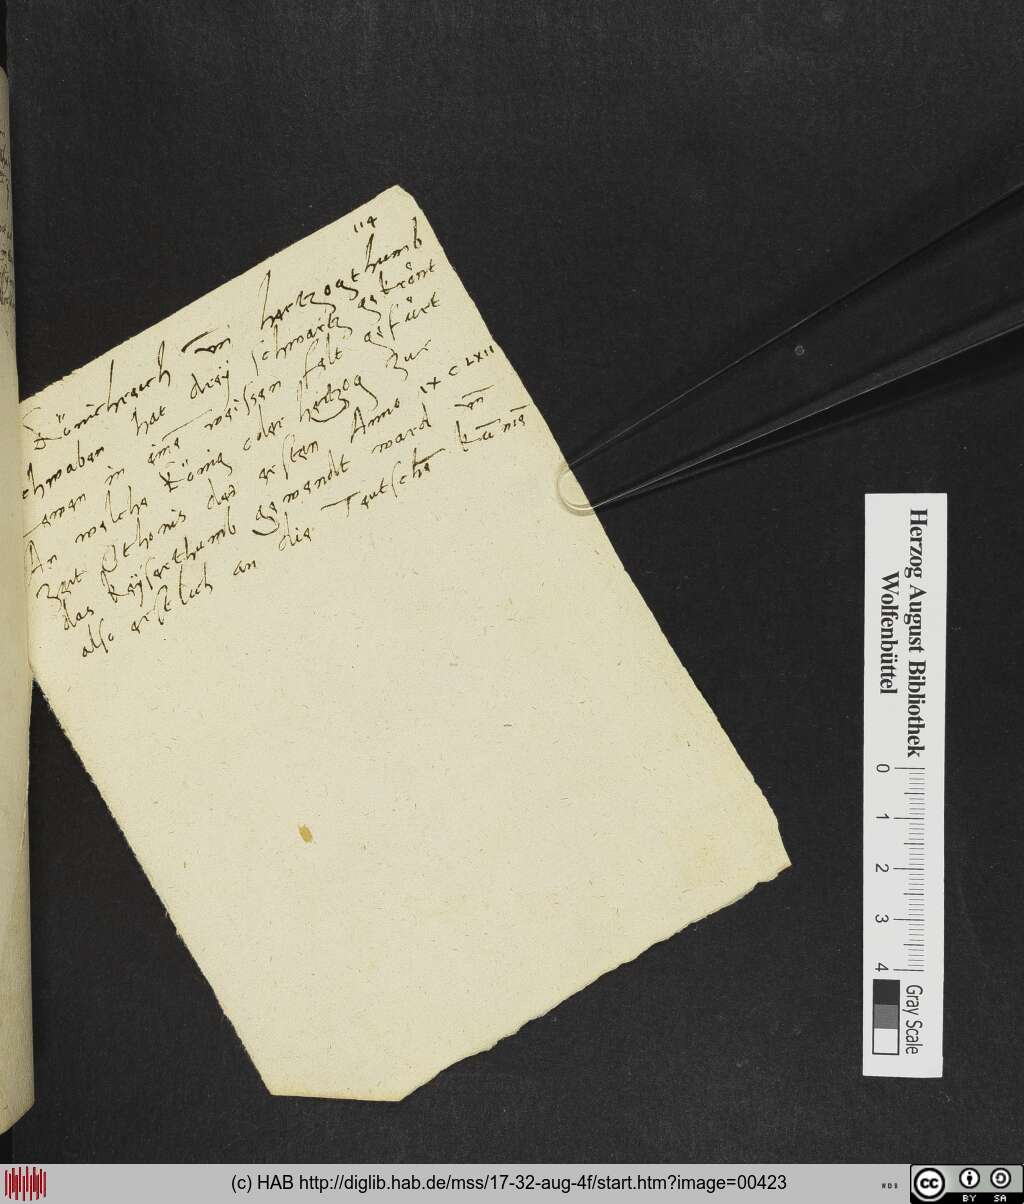 114
Königreich vn̄ hertzogthumb
chwaben hat dreÿ schwartz gekrönt
Lewen in einē weissen felt gefürt
An welche König oder hertzog zur
Zeit Othonis des ersten Anno IX C LXII
das Keÿserthumb gewendt ward vn̄
also erstlich an die Teutschē kūmē
Herzog August Bibliothek
Wolfenbüttel
0 1 2 3 4
Gray Scale
(c) HAB http://diglib.hab.de/mss/17-32-aug-4f/start.htm?image=00423
WDB
cc BY SA